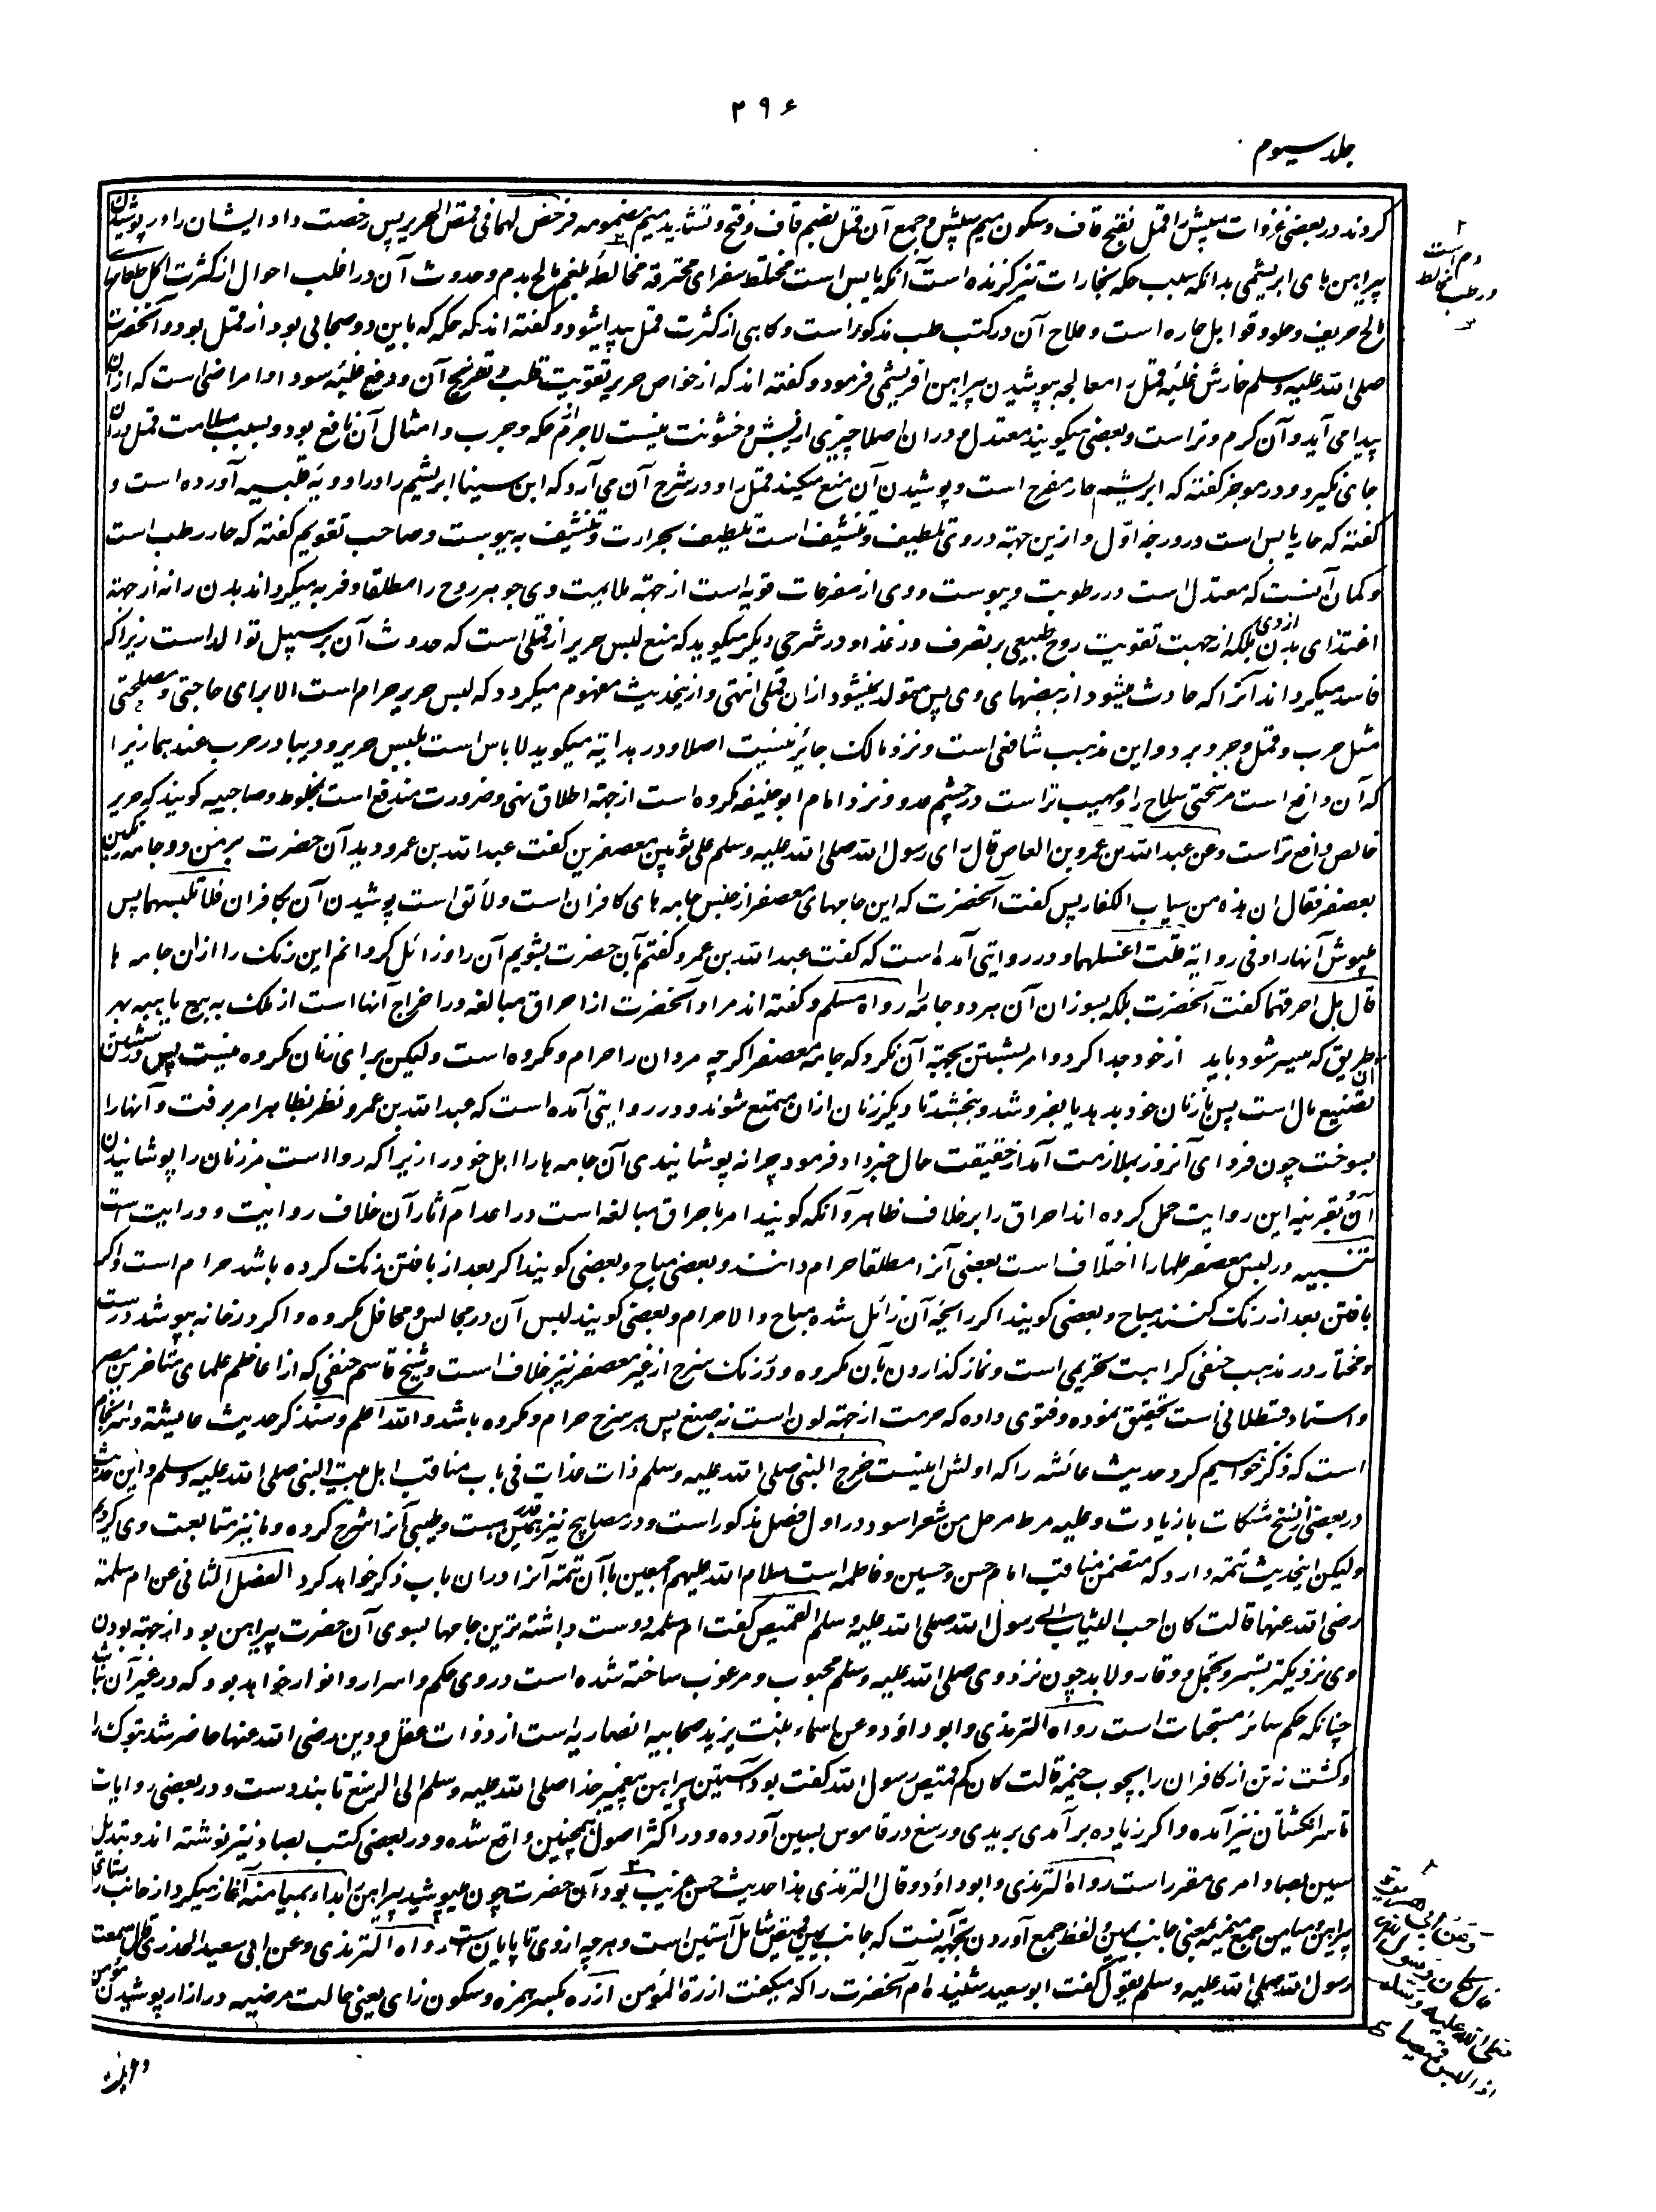 ۲۹۶
جلد سیوم
کردند در بعضی غزوات سپش را قمل بفتح قاف و سکون میم سپش و جمع آن قمل بضم قاف و فتح و تشدید میم مضمومه فرخص لهما فی قمص الحریر پس رخصت داد ایشان را در پوشیدن
پیراهن های ابریشمی بدانکه سبب حکه بخارات تیز گزنده است آنکه یابس است مختلط صفرای محترقه مخالطه بلغم مالح بدم و حدوث آن در اغلب احوال از کثرت اکل طعامهای
مالح حریف و حلو و توابل حاره است و علاج آن در کتب طب مذکور است و گاهی از کثرت قمل پیدا میشود و گفته اند که حکه که باین دو صحابی بود از قمل بود و آنحضرت
صلی الله علیه وسلم خارش غلبه قمل را معالجه بپوشیدن پیراهن ابریشمی فرمود و گفته اند که از خواص حریر تقویت قلب و تفریح آن و دفع غلبه سودا و امراضی است که ازان
پیدا می آید و آن گرم و تر است و بعضی میگویند معتدل و دران اصلا چیزی از یبس و خشونت نیست لاجرم حکه و جرب و امثال آن نافع بود و بسبب ملامت قمل دران
جای نگیرد و در موجز گفته که ابریشم حار مفرح است و پوشیدن آن منع میکند قمل را و در شرح آن می آرد که ابن سینا ابریشم را در ادویه قلبیه آورده است و
گفته که حار یابس است در درجه اول و ازین جهته در وی تلطیف و تنشیف است تلطیف بحرارت و تنشیف به یبوست و صاحب تقویم گفته که حار رطب است
و گمان آنست که معتدل است در رطوبت و یبوست و وی از مفرحات قویه است از جهته ملایمت وی جوهر روح را مطلقا و فربه میگرداند بدن را نه از جهته
اغتذای بدن ازوی بلکه از جهت تقویت روح طبیعی بر تصرف در غذا و در شرحی دیگر میگوید که منع لبس حریر از قملی است که حدوث آن بر سبیل توالد است زیرا که
فاسد میگرداند آنرا که حادث میشود از بیضهای وی پس متولد نمیشود ازان قملی انتهی و ازینحدیث مفهوم میگردد که لبس حریر حرام است الا برای حاجتی و مصلحتی
مثل حرب و قمل و جرب و برد و این مذهب شافعی است و نزد مالک جائز نیست اصلا و در هدایه میگوید لا باس است بلبس حریر و دیبا در حرب عندهما زیرا
که آن دافع است مر سختی سلاح را و مهیب تر است در چشم عدو و نزد امام ابو حنیفه مکروه است از جهته اطلاق نهی و ضرورت مندفع است بمخلوط و صاحبیه گویند که حریر
خالص دافع تر است وعن عبد الله بن عمرو بن العاص قال رای رسول الله صلی الله علیه وسلم علی ثوبین معصفرین گفت عبد الله بن عمرو دید آن حضرت بر من دو جامه رنگین
بعصفر فقال ان هذه من ثیاب الکفار پس گفت آنحضرت که این جامهای معصفر از جنس جامه های کافران است و لائق است پوشیدن آن بکافران فلا تلبسهما پس
مپوش آنها را و فی روایة قلت اغسلهما و در روایتی آمده است که گفت عبد الله بن عمرو گفتم بآن حضرت بشویم آن را و زائل گردانم این رنگ را ازان جامه ها
قال بل احرقهما گفت آنحضرت بلکه بسوزان آن هر دو جامه را رواه مسلم و گفته اند مراد آنحضرت از احراق مبالغه در اخراج آنها است از ملک به بیع یا هبه بهر
طریق که میسر شود باید از خود جدا کرد و امر بشستن بجهته آن نکرد که جامه معصفر اگرچه مردان را حرام و مکروه است ولیکن برای زنان مکروه نیست پس در شستن
آن تضییع مال است پس یا زنان خود بدهد یا بفروشد و ببخشد تا دیگر زنان ازان متمتع شوند و در روایتی آمده است که عبد الله بن عمرو نظر بظاهر امر برفت و آنها را
بسوخت چون فردای آنروز بملازمت آمد از حقیقت حال خبر داد فرمود چرا نه پوشانیدی آن جامه ها را اهل خود را زیرا که روا است مر زنان را پوشانیدن
آن و بقرینه این روایت حمل کرده اند احراق را بر خلاف ظاهر و آنکه گویند امر باحراق مبالغه است در اعدام آثار آن خلاف روایت و درایت است
تنبیه در لبس معصفر علما را اختلاف است بعضی آنرا مطلقا حرام دانند و بعضی مباح و بعضی گویند اگر بعد از بافتن رنگ کرده باشد حرام است و اگر
بافتن بعد از رنگ کنند مباح و بعضی گویند اگر رایحه آن زائل شده مباح و الا حرام و بعضی گویند لبس آن در مجالس و محافل مکروه و اگر در خانه بپوشد درست
و مختار در مذهب حنفی کراهت تحریمی است و نماز گذاردن بآن مکروه و در رنگ سرخ از غیر معصفر نیز خلاف است و شیخ قاسم حنفی که از اعاظم علمای متاخرین مصر
و استاد قسطلانی است تحقیق نموده و فتوی داده که حرمت از جهته لون است نه صبغ پس هر سرخ حرام و مکروه باشد والله اعلم و سنذکر حدیث عایشة و اینجا
است که ذکر خواهیم کرد حدیث عائشه را که اولش اینست خرج النبی صلی الله علیه وسلم ذات غداة فی باب مناقب اهل بیت النبی صلی الله علیه وسلم و این حدیث
در بعضی از نسخ مشکات بازیادت و علیه مرط مرحل من شعر اسود در اول فصل مذکور است و در مصابیح نیز همچنین هست و طیبی آنرا شرح کرده و ما نیز متابعت وی کردیم
ولیکن اینحدیث تتمه دارد که متضمن مناقب امام حسن و حسین و فاطمه است سلام الله علیهم اجمعین با آن تتمه آنرا دران باب ذکر خواهد کرد الفصل الثانی عن ام سلمة
رضی الله عنها قالت کان احب الثیاب الی رسول الله صلی الله علیه وسلم القمیص گفت ام سلمه دوست داشته ترین جامها بسوی آن حضرت پیراهن بود از جهته بودن
وی نزدیکتر بتستر و تجمل و وقار و لابد چون نزد وی صلی الله علیه وسلم محبوب و مرغوب ساخته شده است در وی حکم و اسرار و انوار خواهد بود که در غیر آن نباشد
چنانکه حکم سائر مستحبات است رواه الترمذی و ابو داؤد وعن اسماء بنت یزید صحابیه انصاریه است از ذوات عقل و دین رضی الله عنها حاضر شد یرموک را
و کشت نه تن از کافران را بچوب خیمه قالت کان کم قمیص رسول الله گفت بود آستین پیراهن پیغمبر خدا صلی الله علیه وسلم الی الرسغ تا بند دست و در بعضی روایات
تا سر انگشتان نیز آمده و اگر زیاده بر آمدی بریدی و رسغ در قاموس بسین آورده و در اکثر اصول همچنین واقع شده و در بعضی کتب بصاد نیز نوشته اند و تبدیل
سین بصاد امری مقرر است رواه الترمذی و ابو داؤد و قال الترمذی هذا حدیث حسن غریب بود آن حضرت چون میپوشید پیراهن ابداء بمیامنه آغاز میکرد از جانب راستهای
پیراهن و میامن جمع میمنه بمعنی جانب یمین و لفظ جمع آوردن بجهته آنست که جانب یمین قمیص شامل آستین است و هرچه ازوی تا پایان ست رواه الترمذی وعن ابی سعید الخدری قال سمعت
رسول الله صلی الله علیه وسلم یقول گفت ابو سعید شنیده ام آنحضرت را که میگفت ازرة المؤمن ازره بکسر همزه و سکون زای یعنی حالت مرضیه در ازار پوشیدن مؤمن
۲
دم است
ورطب مخالط
۲
وعن ابی هریرة
قال کان رسول الله
صلی الله علیه وسلم
اذا لبس قمیصا